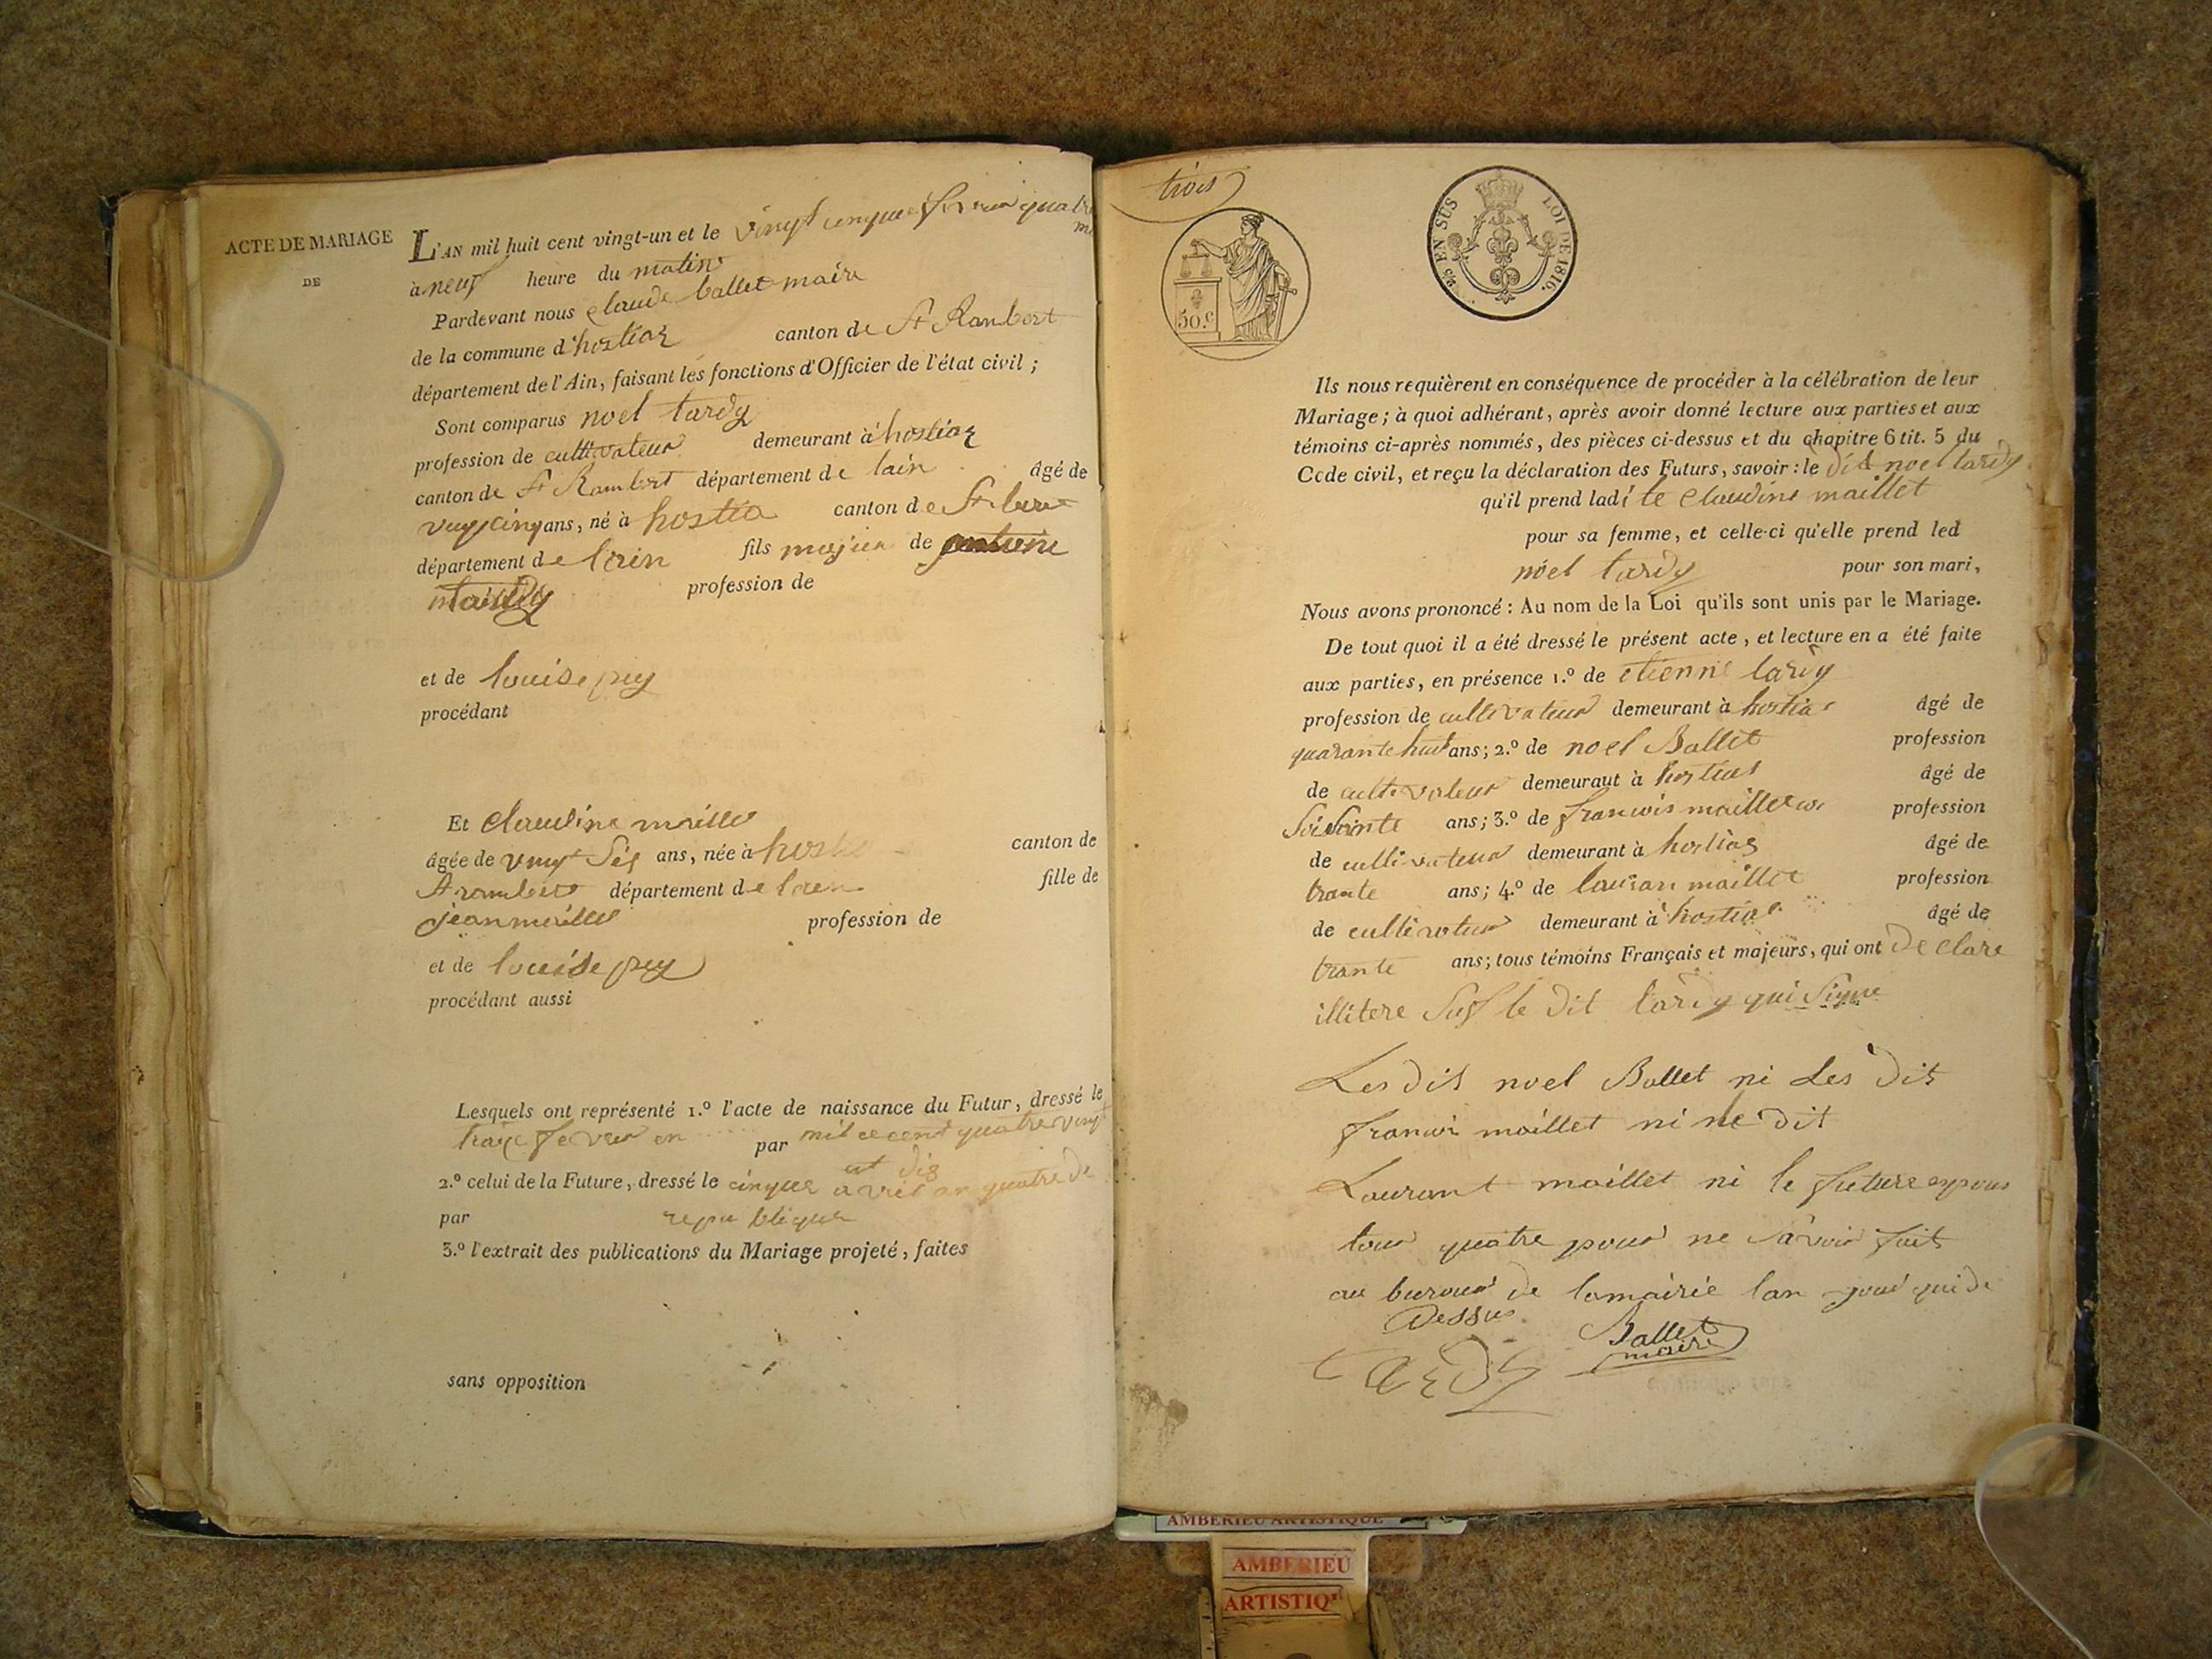 ACTE DE MARIAGE
DE
L'AN mil huit cent vingt-un et le vingt cinque
à neuf heure du matin
Pardevant nous claude ballet maire
de la commune d'hostiaz canton de St Rambert
département de l'Ain, faisant les fonctions d'Officier de l'état civil ;
Sont comparus noel tardy
profession de cultivateur demeurant à hostiaz
canton de St Rambert département de lain âgé de
ans, né à hostia canton de St
département de lain fils majeur de
profession de
et de louise puy
procédant
Et claudine maillet
âgée de vingt ans, née à canton de
département de fille de
jean maillet profession de
et de louise puy
procédant aussi
Lesquels ont représenté 1.º l'acte de naissance du Futur, dressé le
par mil cent quatre vingt
et dix
2.º celui de la Future, dressé le cinque avril an quatre de
par republique
3.º l'extrait des publications du Mariage projeté, faites
sans opposition
trois
50.c
25 EN SUS
LOI DE 1816.
Ils nous requièrent en conséquence de procéder à la célébration de leur
Mariage ; à quoi adhérant, après avoir donné lecture aux parties et aux
témoins ci-après nommés, des pièces ci-dessus et du chapitre 6 tit. 5 du
Code civil, et reçu la déclaration des Futurs, savoir : le dit noel tardy
qu'il prend ladite Claudine maillet
pour sa femme, et celle-ci qu'elle prend led
noel tardy pour son mari,
Nous avons prononcé : Au nom de la Loi qu'ils sont unis par le Mariage.
De tout quoi il a été dressé le présent acte, et lecture en a été faite
aux parties, en présence 1.º de etienne tardy
profession de cultivateur demeurant à hostias âgé de
quarante huit ans ; 2.º de noel Ballet profession
de cultivateur demeuraut à hostias âgé de
ans ; 3.º de francois maillet profession
de cultivateur demeurant à hostias âgé de
trante ans ; 4.º de lauran maillet profession
de cultivateur demeurant à hostias âgé de
trante ans ; tous témoins Français et majeurs, qui ont declare
illitere le dit tardy qui Signe
Les dit noel Ballet ni Les dit
maillet ni dit
Laurant maillet ni le future
tous quatre pour ne Savoir fait
au de lamairie lan
Dessus
Ballet
maire